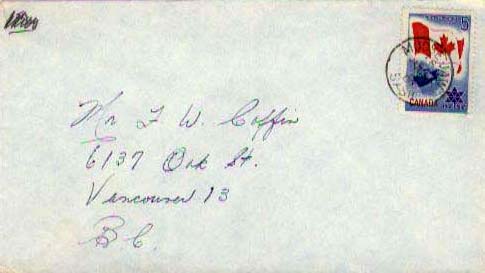 Mr F W. Coffin
6137 Oak St.
Vancouver 13
B C.
5
CANADA